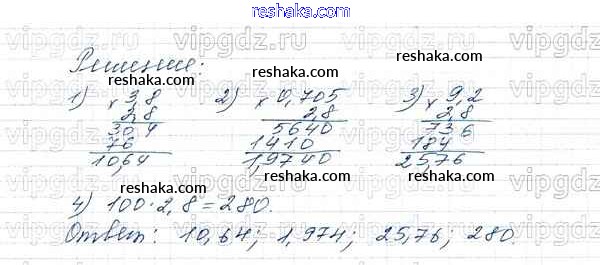 reshaka.com
Решение:
1) × 3,8
2,8
304
76
10,64
2) × 0,705
2,8
5640
1410
1,9740
3) × 9,2
2,8
736
184
25,76
4) 100 · 2,8 = 280.
Ответ: 10,64; 1,974; 25,76; 280.
reshaka.com
reshaka.com
reshaka.com
reshaka.com
reshaka.com
reshaka.com
reshaka.com
reshaka.com
reshaka.com
vipgdz.ru
vipgdz.ru
vipgdz.ru